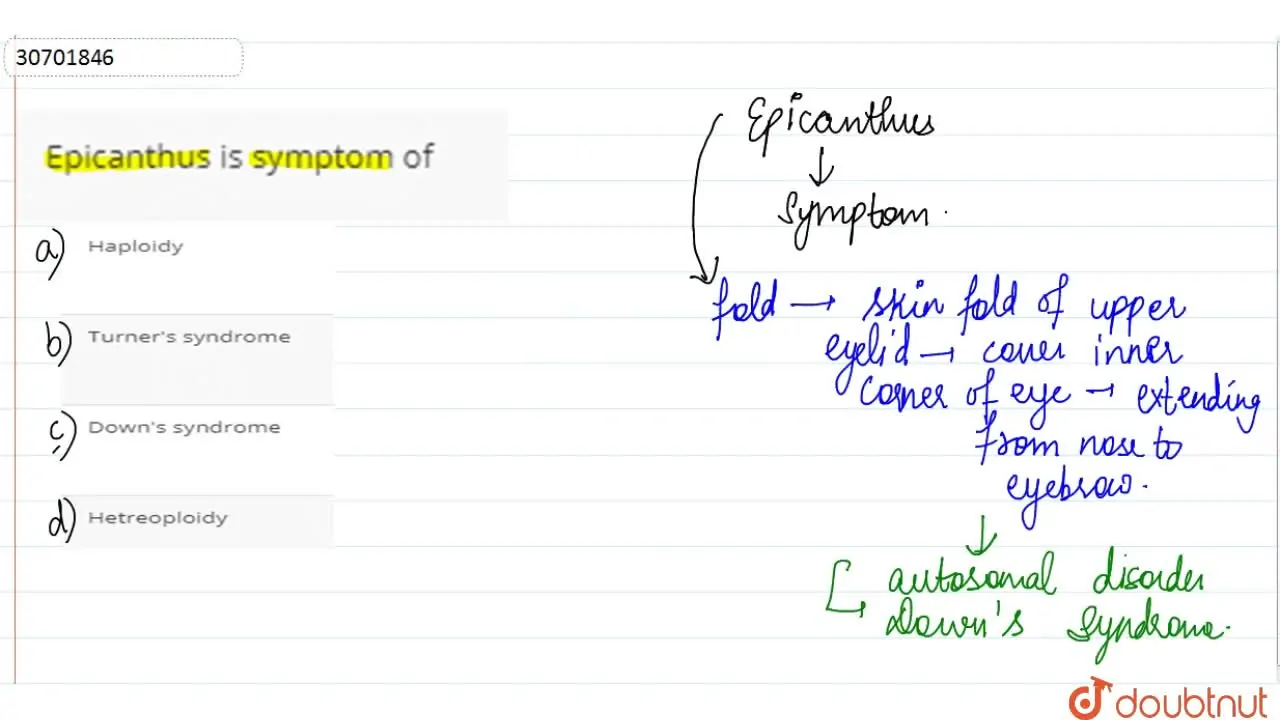 30701846
Epicanthus is symptom of
a) Haploidy
b) Turner's syndrome
c) Down's syndrome
d) Hetreoploidy
Epicanthus
↓
Symptom.
fold → skin fold of upper
eyelid → cover inner
corner of eye → extending
from nose to
eyebrow.
↓
autosomal disorder
→ Down's Syndrome.
doubtnut